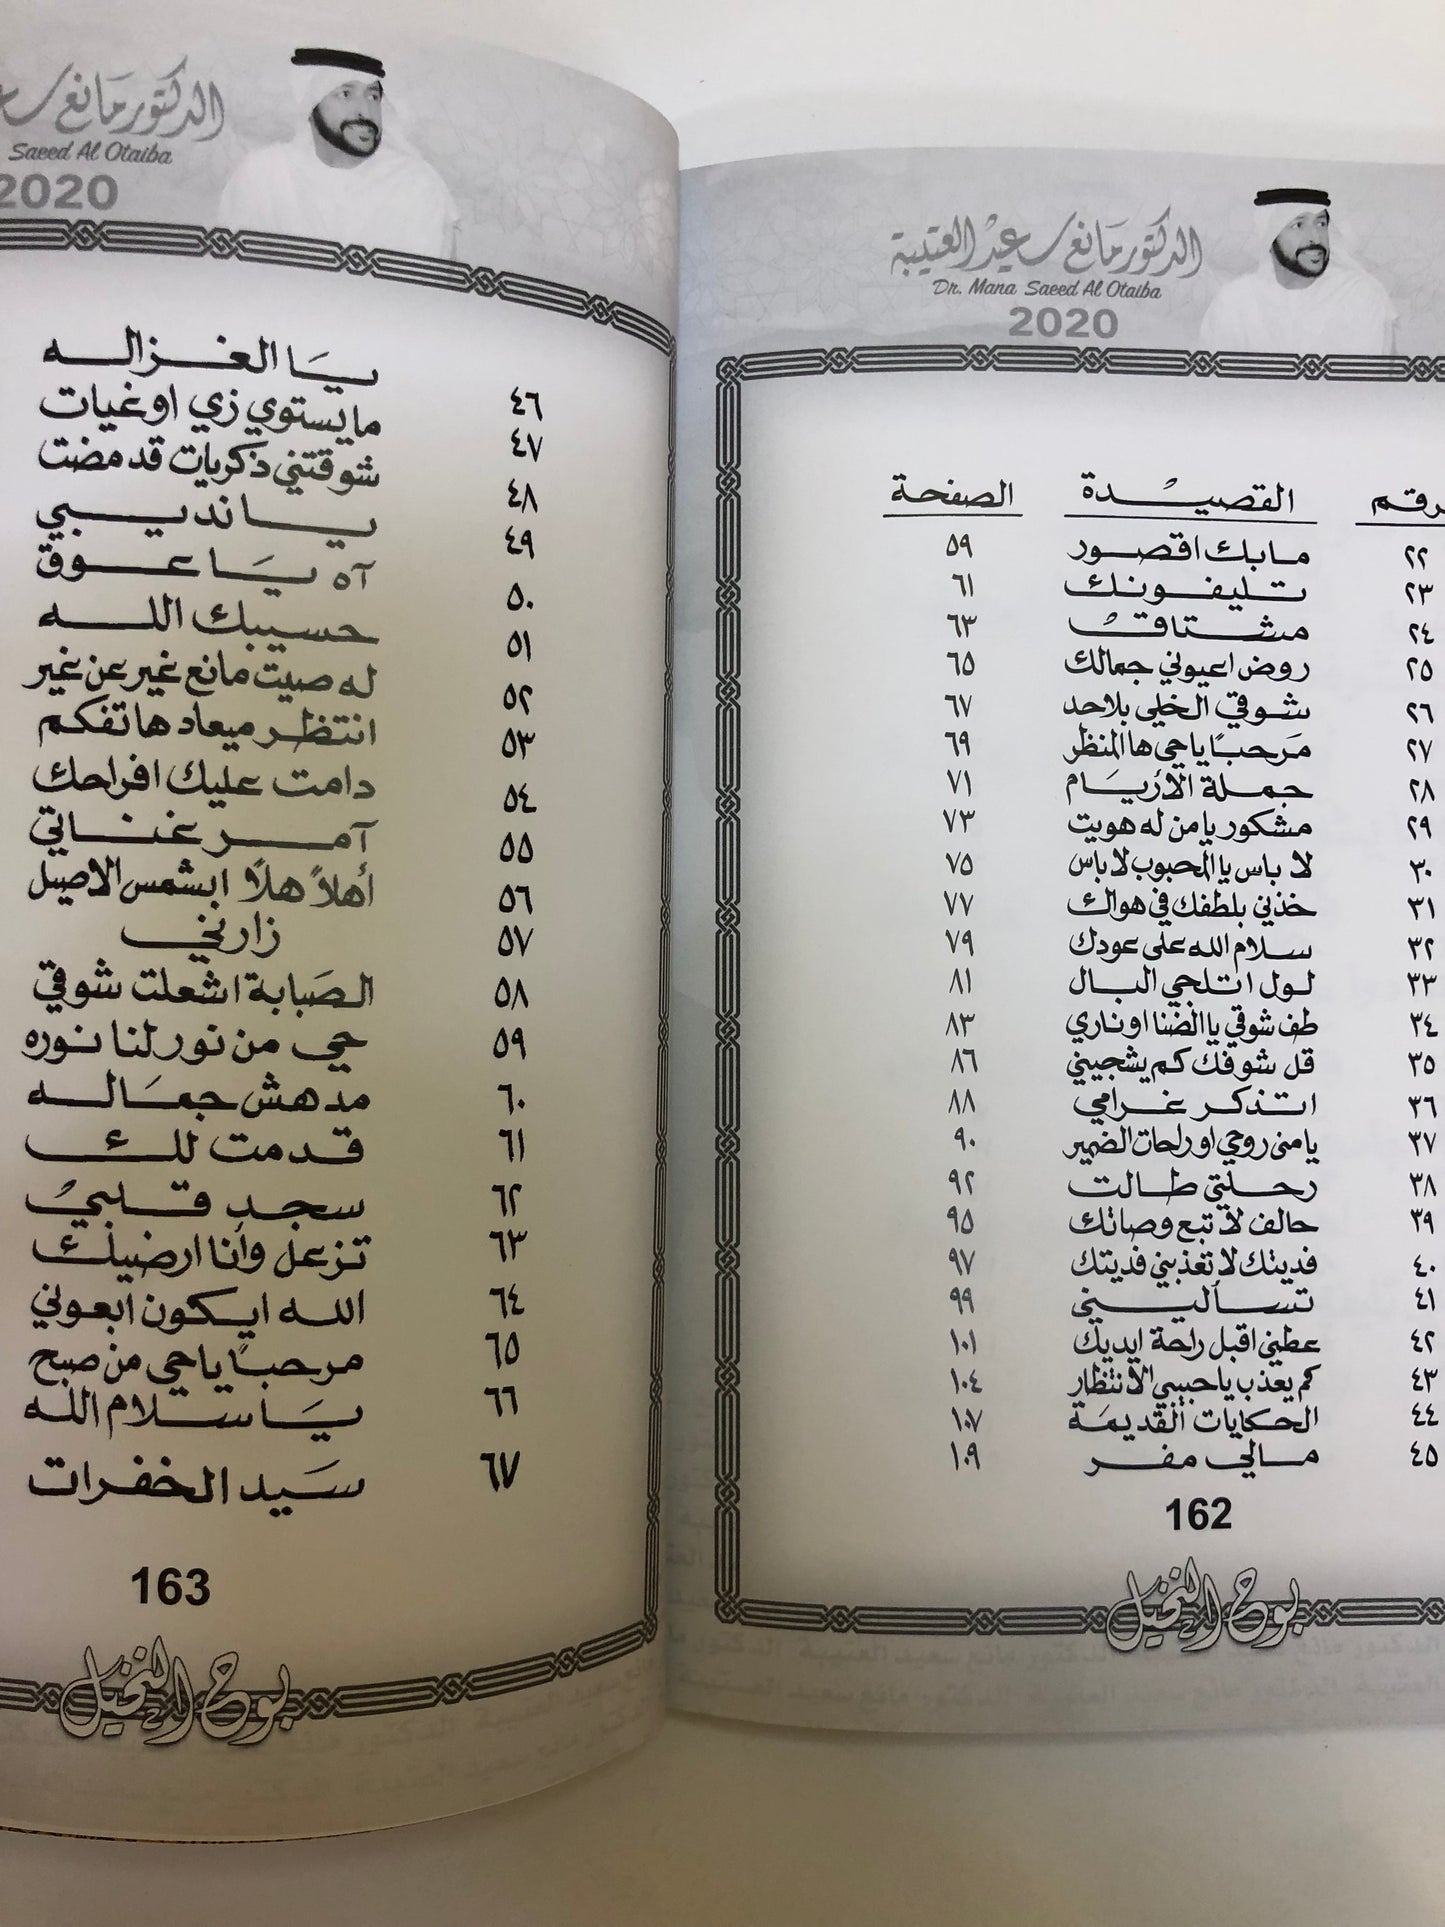 الدكتور مانع سعيد العتيبة
Dr. Mana Saeed Al Otaiba
2020
رقم القصيدة الصفحة
٢٢ مابك اقصور ٥٩
٢٣ تليفونك ٦١
٢٤ مشتاق ٦٣
٢٥ روض اعيوني جمالك ٦٥
٢٦ شوقي الخلي بلاحد ٦٧
٢٧ مرحبًا ياحي هالمنظر ٦٩
٢٨ جملة الأريام ٧١
٢٩ مشكور يامن له هويت ٧٣
٣٠ لا باس يا المحبوب لاباس ٧٥
٣١ خذني بلطفك في هواك ٧٧
٣٢ سلام الله على عودك ٧٩
٣٣ لول اتلجي البال ٨١
٣٤ طف شوقي يا الضنا او ناري ٨٣
٣٥ قل شوفك كم يشجيني ٨٦
٣٦ اتذكر غرامي ٨٨
٣٧ يامنى روحي او راحات الضمير ٩٠
٣٨ رحلتي طالت ٩٢
٣٩ حالف لا تبع وصاتك ٩٥
٤٠ فديتك لا تعذبني فديتك ٩٧
٤١ تسأليني ٩٩
٤٢ عطني اقبل راحة ايديك ١٠١
٤٣ كم يعذب ياحبيبي الانتظار ١٠٤
٤٤ الحكايات القديمة ١٠٧
٤٥ مالي مفر ١٠٩
162
بوح النخيل
الدكتور مانع
Saeed Al Otaiba
2020
٤٦ يا الغزاله
٤٧ مايستوي زي اوغيات
٤٨ شوقتني ذكريات قد مضت
٤٩ يا نديبي
٥٠ آه يا عوق
٥١ حسيبك الله
٥٢ له صيت مانع غير عن غير
٥٣ انتظر ميعاد هاتفكم
٥٤ دامت عليك افراحك
٥٥ آمر غناتي
٥٦ أهلاً هلاً ابشمس الاصيل
٥٧ زارني
٥٨ الصبابة اشعلت شوقي
٥٩ حي من نور لنا نوره
٦٠ مدهش جماله
٦١ قدمت لك
٦٢ سجد قلبي
٦٣ تزعل وأنا ارضيك
٦٤ الله ايكون ابعوني
٦٥ مرحبًا ياحي من صبح
٦٦ يا سلام الله
٦٧ سيد الخفرات
163
بوح النخيل